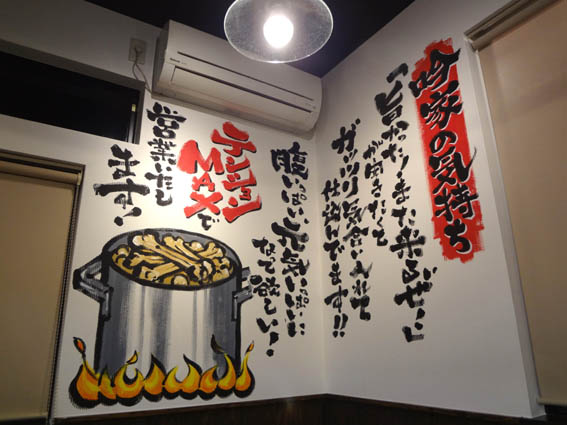 吟家の気持ち
「旨かった！また来るぜ！」
が聞きたくて
ガッツリ気合い入れて
仕込んでます！！
腹いっぱい元気いっぱいに
なって欲しい！
テンション
MAXで
営業いたし
ます！